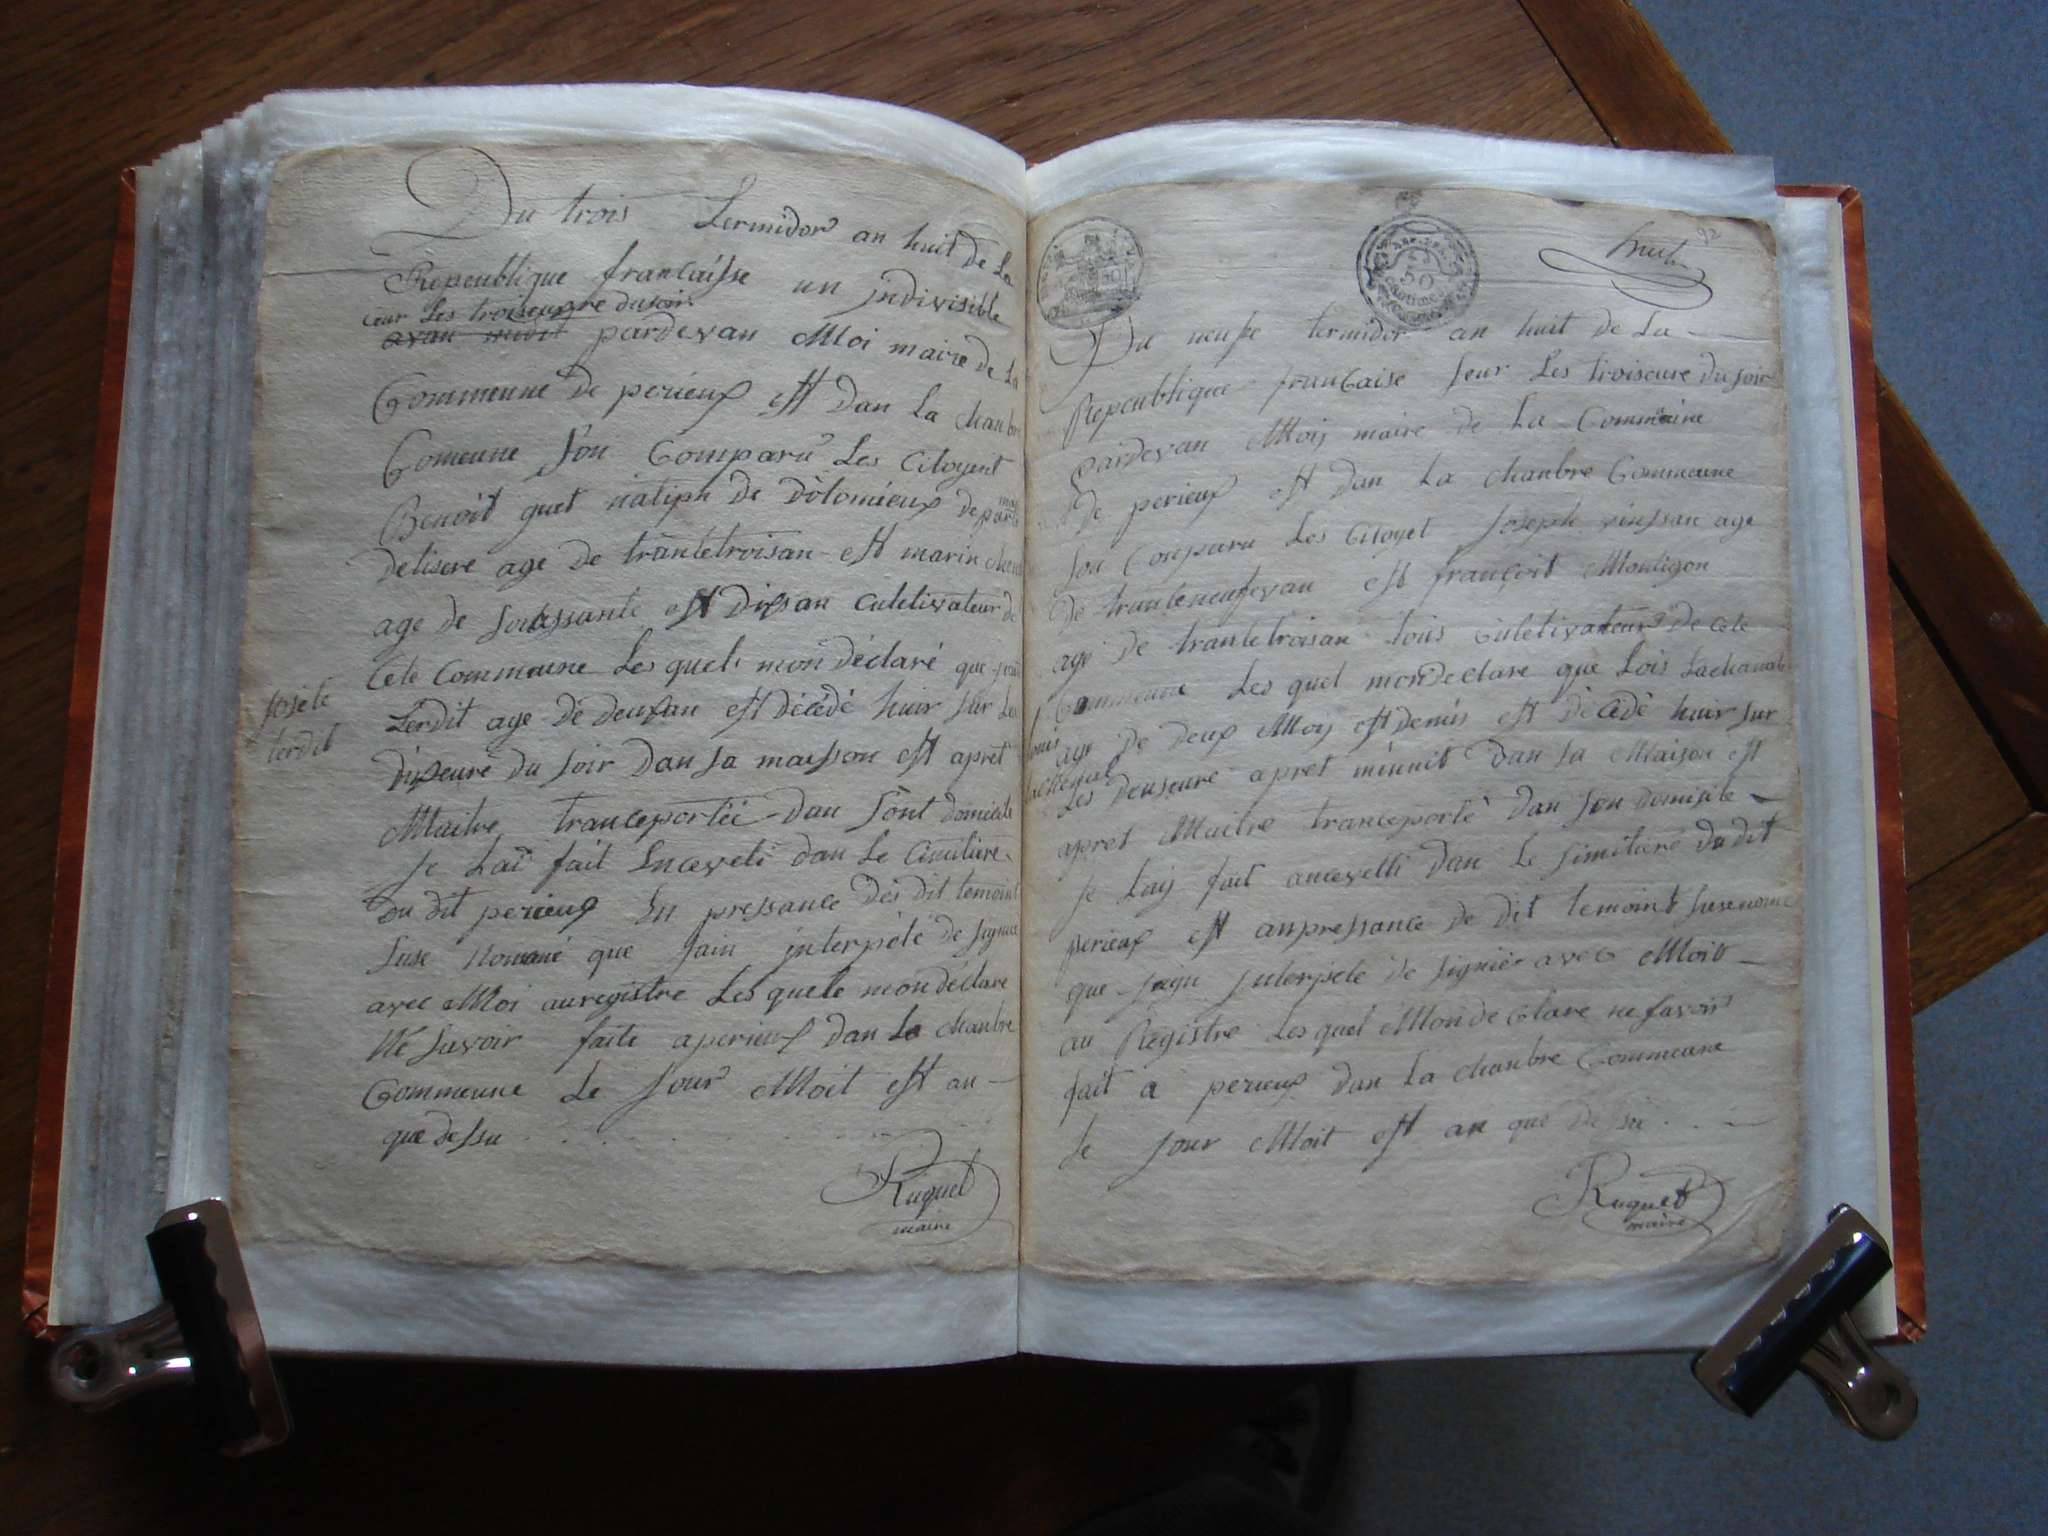 Du trois Termidor an huit de La
Repeublique francaisse un indivisible
ceur Les troiseure du soir
avan midit pardevan Moi maire de La
Commeune de perieux est dan La chanbre
Comeune son Comparu Les Citoyent
Benoit guet natiph de Dolomieux departe
ma
delisere age de trantetroisan est marin
age de soissante est dissan Culetivateur de
Cete Commeune Les quels mon déclaré que
Josele
terdit
terdit age de deuxan est décédé huir sur Les
dixeure du soir dan sa maisson est apret
Maitre tranceportéé dan sont domicile
Je Lai fait Enceveli dan Le Cimitiere
du dit perieux En pressance des dit temoint
suse nommé que jain interpélé de signier
avec Moi auregistre Les quele mon déclare
Né savoir faite a perieux dan La chanbre
Commeune Le Jour Moit est an
que dessu
Ruquet
maire
92
huit
50
centimes
Du neufe termidor an huit de La
Repeublique francaise seur Les troiseure du soir
pardevan Moij maire de La Commeune
de perieux est dan La chanbre Commeune
son Conparu Les Citoyet Joseph vinssan age
de tranteneufevan est françoit Monligon
agé de trantetroisan tous Culetivateur de Cete
Commeune Les quel mon declare que Lois Lachanal
Louis
Lachenal
age de deux Moij est demis est décédé huir sur
Les deuseure apret minuit dan sa Maison est
apret Maitre tranceporté dan son domicile
Je Laij fait ancevelli dan Le simitiere du dit
perieux est anpressance de dit temoint susenome
que jaijn interpele de signier avec Moit
au Registre Les quel Mon declare ne savoir
fait a perieux dan La chanbre Commeune
Le Jour Moit est an que dessu
Ruquet
maire